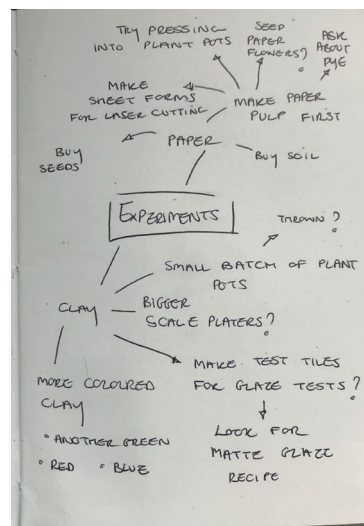 TRY PRESSING
INTO PLANT POTS
SEED
PAPER
FLOWERS?
ASK
ABOUT
DYE
MAKE
SHEET FORMS
FOR LASER CUTTING
MAKE PAPER
PULP FIRST
PAPER
BUY
SEEDS
BUY SOIL
EXPERIMENTS
THROWN?
SMALL BATCH OF PLANT
POTS
CLAY
BIGGER
SCALE PLATERS?
MORE COLOURED
CLAY
• ANOTHER GREEN
• RED • BLUE
MAKE TEST TILES
FOR GLAZE TESTS?
LOOK FOR
MATTE GLAZE
RECIPE